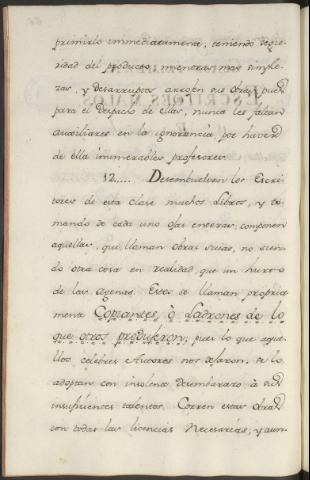 primirlo immediatamente; teniendo segu-
ridad del producto; mientras mas simple-
zas, y desarrapos arrojen sus obras; pues
para el Despacho de ellas, nunca les faltan
auxiliares en la ignorancia, por haver
de ella inumerables profesores.
12..... Desembuelven los Escri-
tores de esta clase muchos Libros, y to-
mando de cada uno ojas enteras, componen
aquellas, que llaman obras suias, no sien-
do otra cosa en realidad, que un hurto
de las agenas. Estos se llaman propria-
mente Copiantes, ò Ladrones de lo
que otros produxeron; pues lo que aque-
llos celebres Autores nos dejaron, se lo
adoptan con insolente desembarazo à sus
insuficientes talentos. Corren estas obras
con todas las licencias Necesarias, y aun-